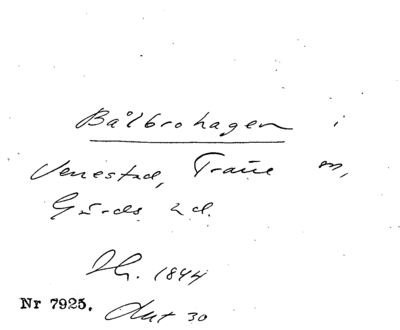 Bålbrohagen i
Venestad, Träne sn,
Gärds hd.
Jh. 1844
Nr 7925. Akt 30